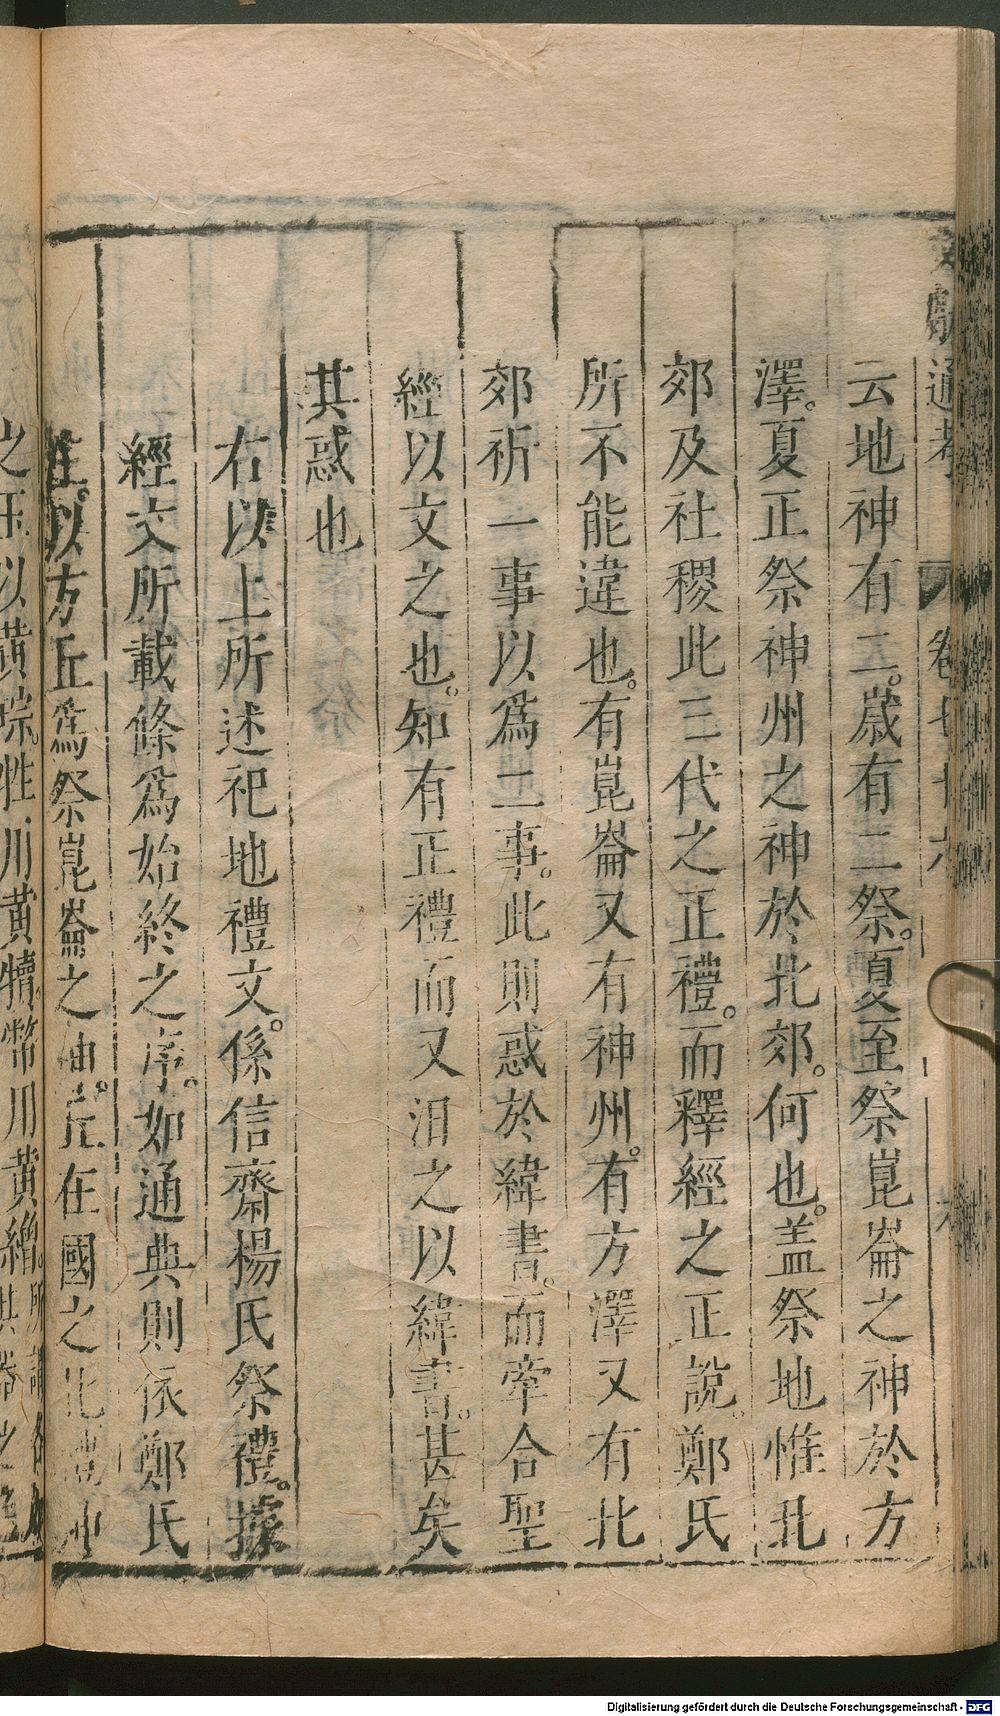 通考 卷七十六 六
云地神有二。歲有二祭。夏至祭崑崙之神於方
澤。夏正祭神州之神於北郊。何也。盖祭地惟北
郊及社稷此三代之正禮。而釋經之正說。鄭氏
所不能違也。有崑崙又有神州。有方澤又有北
郊祈一事以爲二事。此則惑於緯書。而牽合聖
經以文之也。知有正禮而又汨之以緯書。甚矣
其惑也
右以上所述祀地禮文。係信齋楊氏祭禮。據
經文所載條爲始終之序。如通典則依鄭氏
註。以方丘爲祭崑崙之神。丘在國之北
之玉以黃琮。牲用黃犢。幣用黃繒。
Digitalisierung gefördert durch die Deutsche Forschungsgemeinschaft - DFG